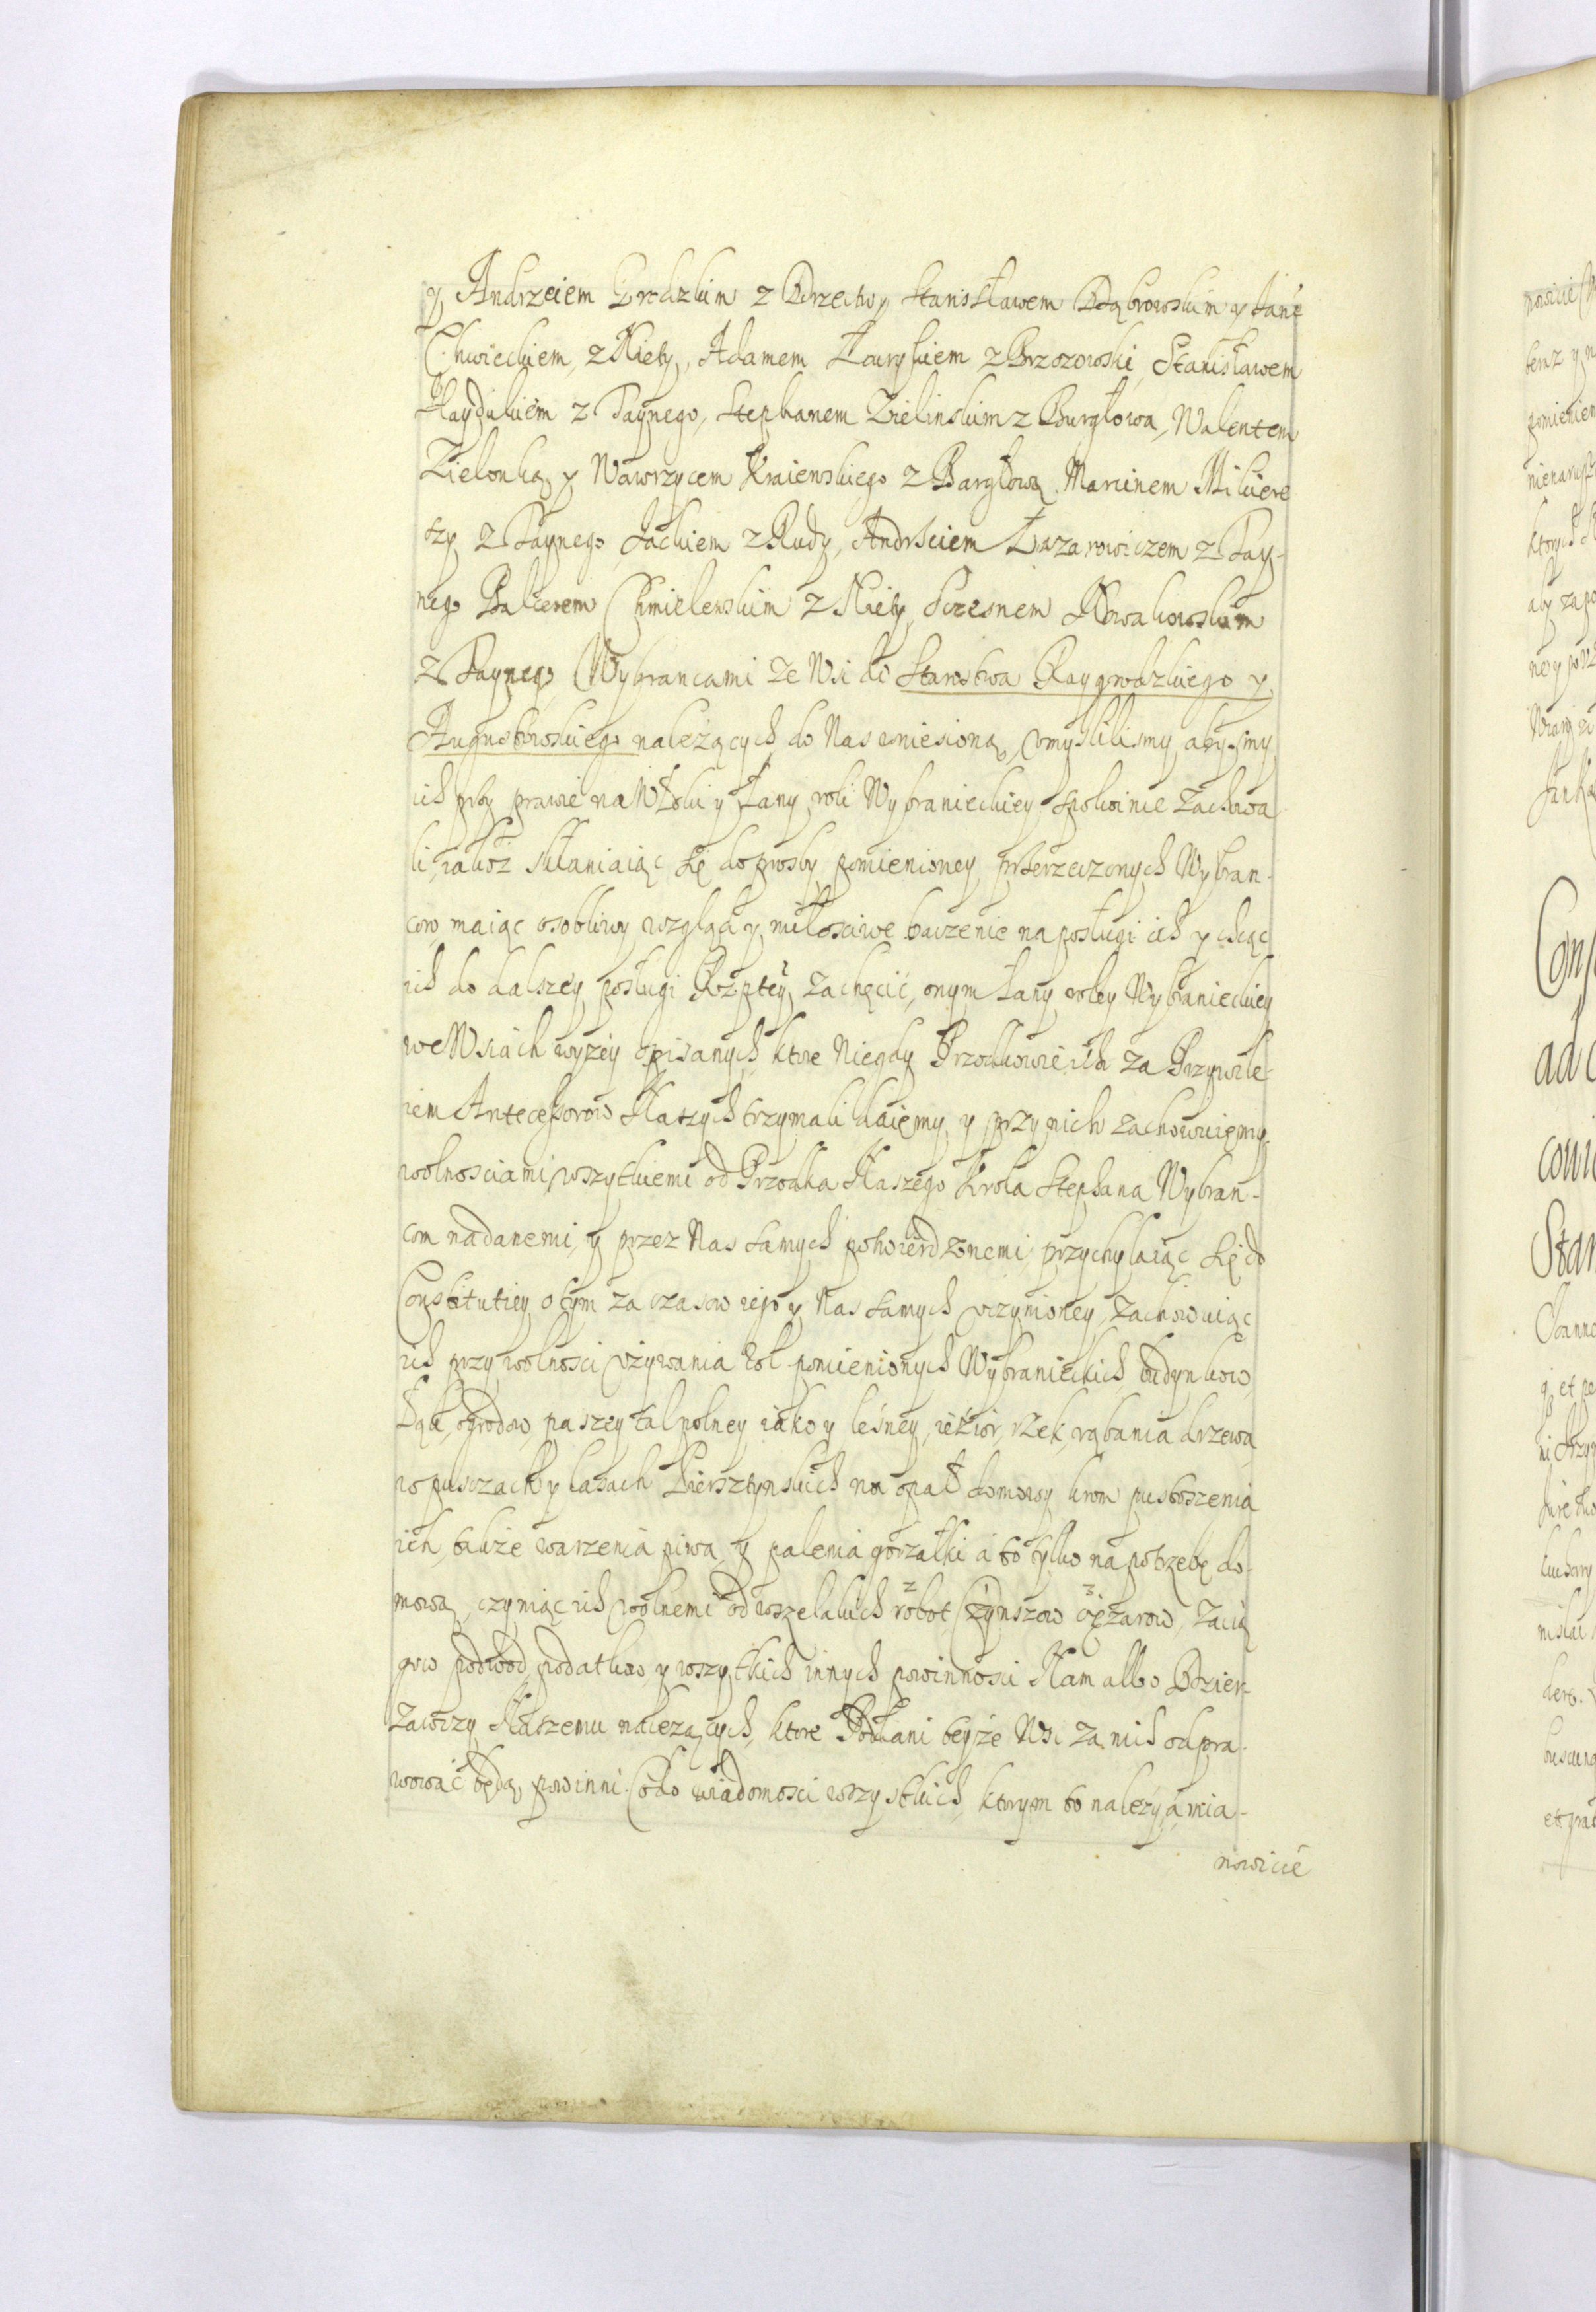 y Andrzeiem Grodzkim z Drzectwy Stanisławem Dąbrowskim y Jane
Chwieckiem, z Niety, Adamem Zaurykiem z Brzozowski, Stanisławem
Haydukiem z Taynego, Stephanem Zielinskim z Burgłowa, Walentem
Zielonką y Wawrzycem Kraiewskiego z Bargłowa, Marcinem Mikiere
tzy z Taynego Jackiem z Rudy, Andrzeiem Łazarowiczem z Tay-
nego Balcerem Chmielewskim z Niety, Sczesnem Nowakowskim
z Taynego Wybrancami ze Wsi do Starostwa Raygrodzkiego y
Augustowskiego należących, do Nas wniesioną, vmyslilismy, abysmy
ich przy prawie na Włoki y Łany roli Wybranieckiey spokoinie zachowa
li, iakoż skłaniaiąc się do prosby pomienioney przerzeczonych Wybran-
cow, maiąc osobliwy wzgląd y miłosciwe baczenie na posługi ich y chcąc
ich do dalszey posługi Rzptey zachęcić, onym Łany roley Wybranieckiey
we Wsiach wyżey opisanych, ktore Niegdy Przodkowie ich za Przywile-
iem Antecessorow Naszych trzymali daiemy, y przy nich zachowuiemy
wolnosciami wszytkiemi od Przodka Naszego Krola Stephana Wybran-
com nadanemi, y przez Nas samych potwierdzonemi, przychylaiąc się do
Constitutiey o tym za czasow iego y Nas samych vczynioney, zachowuiąc
ich przy wolnosci vżywania Rol pomienionych Wybranieckich, budynkow,
Łąk, ogrodow, paszey tak polney iako y leśney, iezior, rzek, rąbania drzewa
w puszczach y lasach Piersztynskich na opał domowy krom pustoszenia
ich, także warzenia piwa, y palenia gorzałki a to tylko na potrzebę do-
mową, czyniąc ich wolnemi od wszelakich robot, Czynszow ciężarow, zacią
gow podwod, podatkow y wszytkich innych powinności Nam albo Dzier-
zawczy Naszemu należących, ktore Poddani teyże Wsi za nich odpra-
wować będą powinni. Co do wiadomosci wszystkich, ktorym to należy, a mia-
nowicie